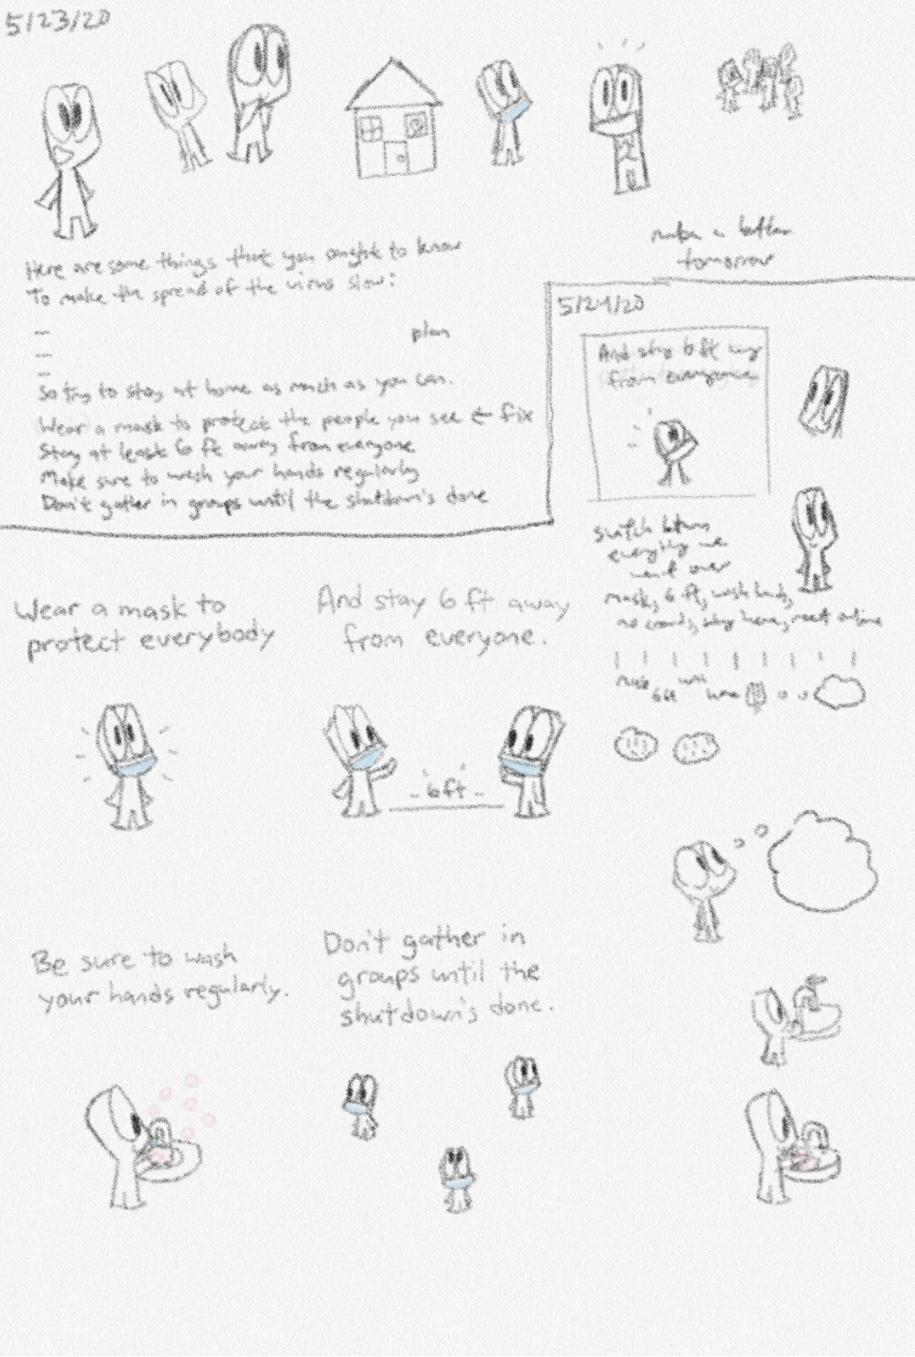 5/23/20
Here are some things that you ought to know
To make the spread of the virus slow:
plan
So try to stay at home as much as you can.
Wear a mask to protect the people you see ← fix
Stay at least 6 ft away from everyone
Make sure to wash your hands regularly
Don't gather in groups until the shutdown's done
make a better
tomorrow
5/24/20
And stay 6 ft
from everyone
switch
everything we
went over
mask, 6 ft, wash hands,
no crowds, stay home, meet online
mask
6ft
wash
home
Wear a mask to
protect everybody
And stay 6 ft away
from everyone.
6ft
Be sure to wash
your hands regularly.
Don't gather in
groups until the
shutdown's done.